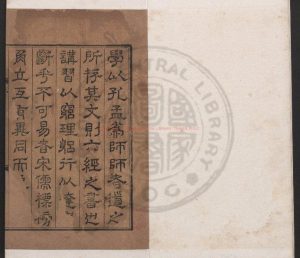 學以孔孟爲師師者道之
所存其文則六經之書也
講習以窮理躬行以
斷乎不可易者宋儒標
角立互有異同而
CENTRAL LIBRARY